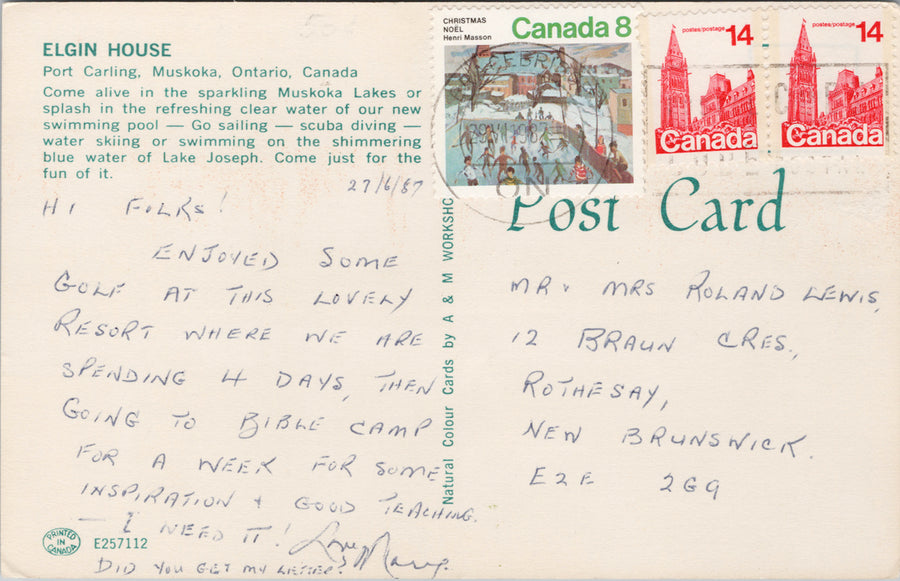 ELGIN HOUSE
Port Carling, Muskoka, Ontario, Canada
Come alive in the sparkling Muskoka Lakes or
splash in the refreshing clear water of our new
swimming pool — Go sailing — scuba diving —
water skiing or swimming on the shimmering
blue water of Lake Joseph. Come just for the
fun of it.
27/6/87
HI FOLKS!
ENJOYED SOME
GOLF AT THIS LOVELY
RESORT WHERE WE ARE
SPENDING 4 DAYS, THEN
GOING TO BIBLE CAMP
FOR A WEEK FOR SOME
INSPIRATION + GOOD TEACHING.
— I NEED IT! Love, Marg.
DID YOU GET MY LETTER?
PRINTED
IN
CANADA
E257112
Natural Colour Cards by A & M WORKSHC
CHRISTMAS
NOËL
Henri Masson
Canada 8
postes/postage 14
Canada
postes/postage 14
Canada
ON
Post Card
MR & MRS ROLAND LEWIS,
12 BRAUN CRES.,
ROTHESAY,
NEW BRUNSWICK.
E2E 2G9